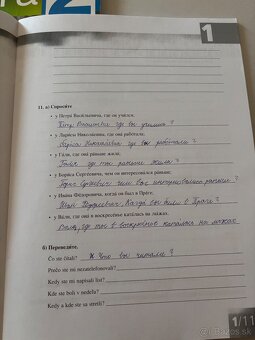 ra 2
1
11. а) Спросите
• у Петра Васильевича, где он учился.
Пётр Васильевич где вы учились ?
• у Ларисы Николаевны, где она работала.
Лариса Николаевна где вы работали ?
• у Гали, где она раньше жила.
Галя где ты раньше жила ?
• у Бориса Сергеевича, чем он интересовался раньше.
Борис Сергеевич чем вы интересовались раньше ?
• у Ивана Фёдоровича, когда он был в Праге.
Иван Фёдорович, когда вы были в Праге ?
• у Вали, где она в воскресенье каталась на лыжах.
Валя, где ты в воскресенье каталась на лыжах
б) Переведите.
Co ste čítali? Что вы читали ?
Prečo ste mi nezatelefonovali?
Kedy ste mi napísali list?
Kde ste boli v nedeľu?
Kedy a kde ste sa stretli?
1/11
bazos.sk